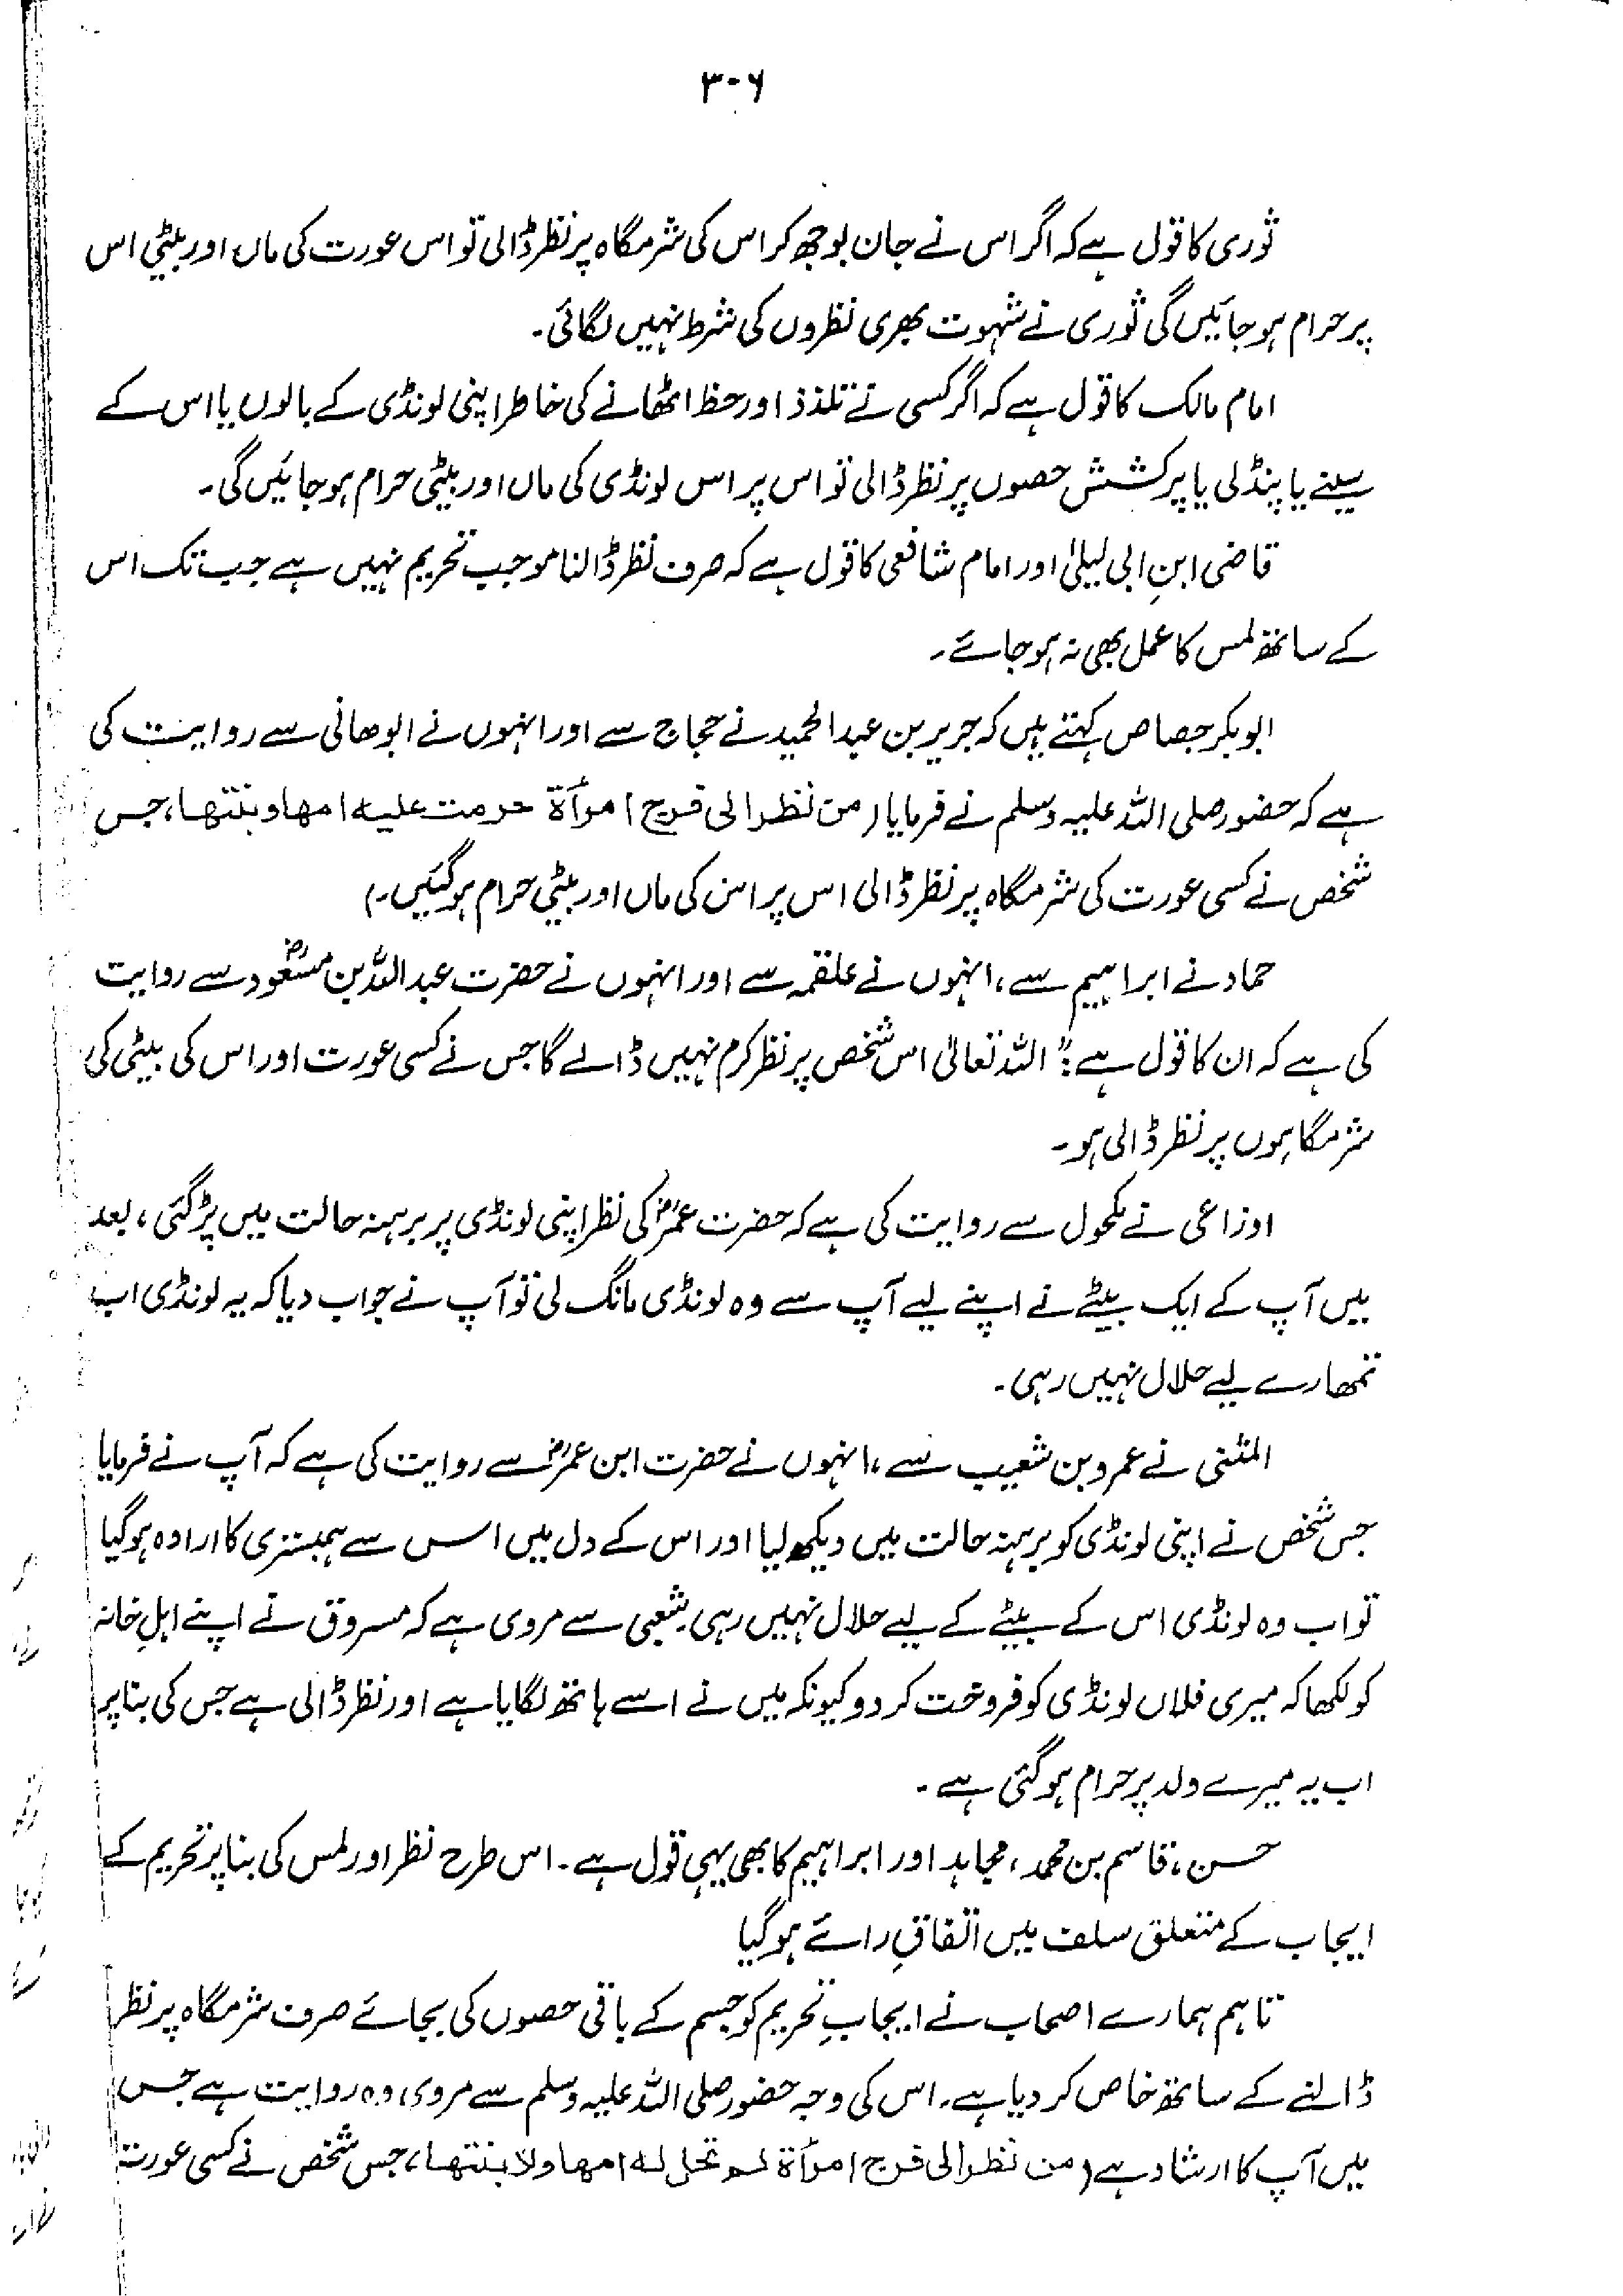 ۳۰۶
ثوری کا قول ہے کہ اگر اس نے جان بوجھ کر اس کی شرمگاہ پر نظر ڈالی تو اس عورت کی ماں اور بیٹی اس
پر حرام ہو جائیں گی ثوری نے شہوت بھری نظروں کی شرط نہیں لگائی۔
امام مالک کا قول ہے کہ اگر کسی نے تلذذ اور حظ اٹھانے کی خاطر اپنی لونڈی کے بالوں یا اس کے
سینے یا پنڈلی یا پرکشش حصوں پر نظر ڈالی تو اس پر اس لونڈی کی ماں اور بیٹی حرام ہو جائیں گی۔
قاضی ابنِ ابی لیلیٰ اور امام شافعی کا قول ہے کہ صرف نظر ڈالنا موجب تحریم نہیں ہے جب تک اس
کے ساتھ لمس کا عمل بھی نہ ہو جائے۔
ابوبکر جصاص کہتے ہیں کہ جریر بن عبدالحمید نے حجاج سے اور انہوں نے ابوھانی سے روایت کی
ہے کہ حضور صلی اللہ علیہ وسلم نے فرمایا (من نظر الی فرج امرأۃ حرمت علیہ امھا و بنتھا، جس
شخص نے کسی عورت کی شرمگاہ پر نظر ڈالی اس پر اس کی ماں اور بیٹی حرام ہوگئیں۔)
حماد نے ابراہیم سے، انہوں نے علقمہ سے اور انہوں نے حضرت عبداللہ بن مسعودؓ سے روایت
کی ہے کہ ان کا قول ہے :" اللہ تعالیٰ اس شخص پر نظر کرم نہیں ڈالے گا جس نے کسی عورت اور اس کی بیٹی کی
شرمگاہوں پر نظر ڈالی ہو۔
اوزاعی نے مکحول سے روایت کی ہے کہ حضرت عمرؓ کی نظر اپنی لونڈی پر برہنہ حالت میں پڑ گئی، بعد
میں آپ کے ایک بیٹے نے اپنے لیے آپ سے وہ لونڈی مانگ لی تو آپ نے جواب دیا کہ یہ لونڈی اب
تمھارے لیے حلال نہیں رہی۔
المثنی نے عمرو بن شعیب سے، انہوں نے حضرت ابن عمرؓ سے روایت کی ہے کہ آپ نے فرمایا
جس شخص نے اپنی لونڈی کو برہنہ حالت میں دیکھ لیا اور اس کے دل میں اس سے ہمبستری کا ارادہ ہوگیا
تو اب وہ لونڈی اس کے بیٹے کے لیے حلال نہیں رہی۔ شعبی سے مروی ہے کہ مسروق نے اپنے اہلِ خانہ
کو لکھا کہ میری فلاں لونڈی کو فروخت کر دو کیونکہ میں نے اسے ہاتھ لگایا ہے اور نظر ڈالی ہے جس کی بنا پر
اب یہ میرے ولد پر حرام ہوگئی ہے۔
حسن، قاسم بن محمد، مجاہد اور ابراہیم کا بھی یہی قول ہے۔ اس طرح نظر اور لمس کی بنا پر تحریم کے
ایجاب کے متعلق سلف میں اتفاقِ رائے ہوگیا
تاہم ہمارے اصحاب نے ایجابِ تحریم کو جسم کے باقی حصوں کی بجائے صرف شرمگاہ پر نظر
ڈالنے کے ساتھ خاص کر دیا ہے۔ اس کی وجہ حضور صلی اللہ علیہ وسلم سے مروی وہ روایت ہے جس
میں آپ کا ارشاد ہے (من نظر الی فرج امرأۃ لم تحل لہ امھا ولا بنتھا، جس شخص نے کسی عورت